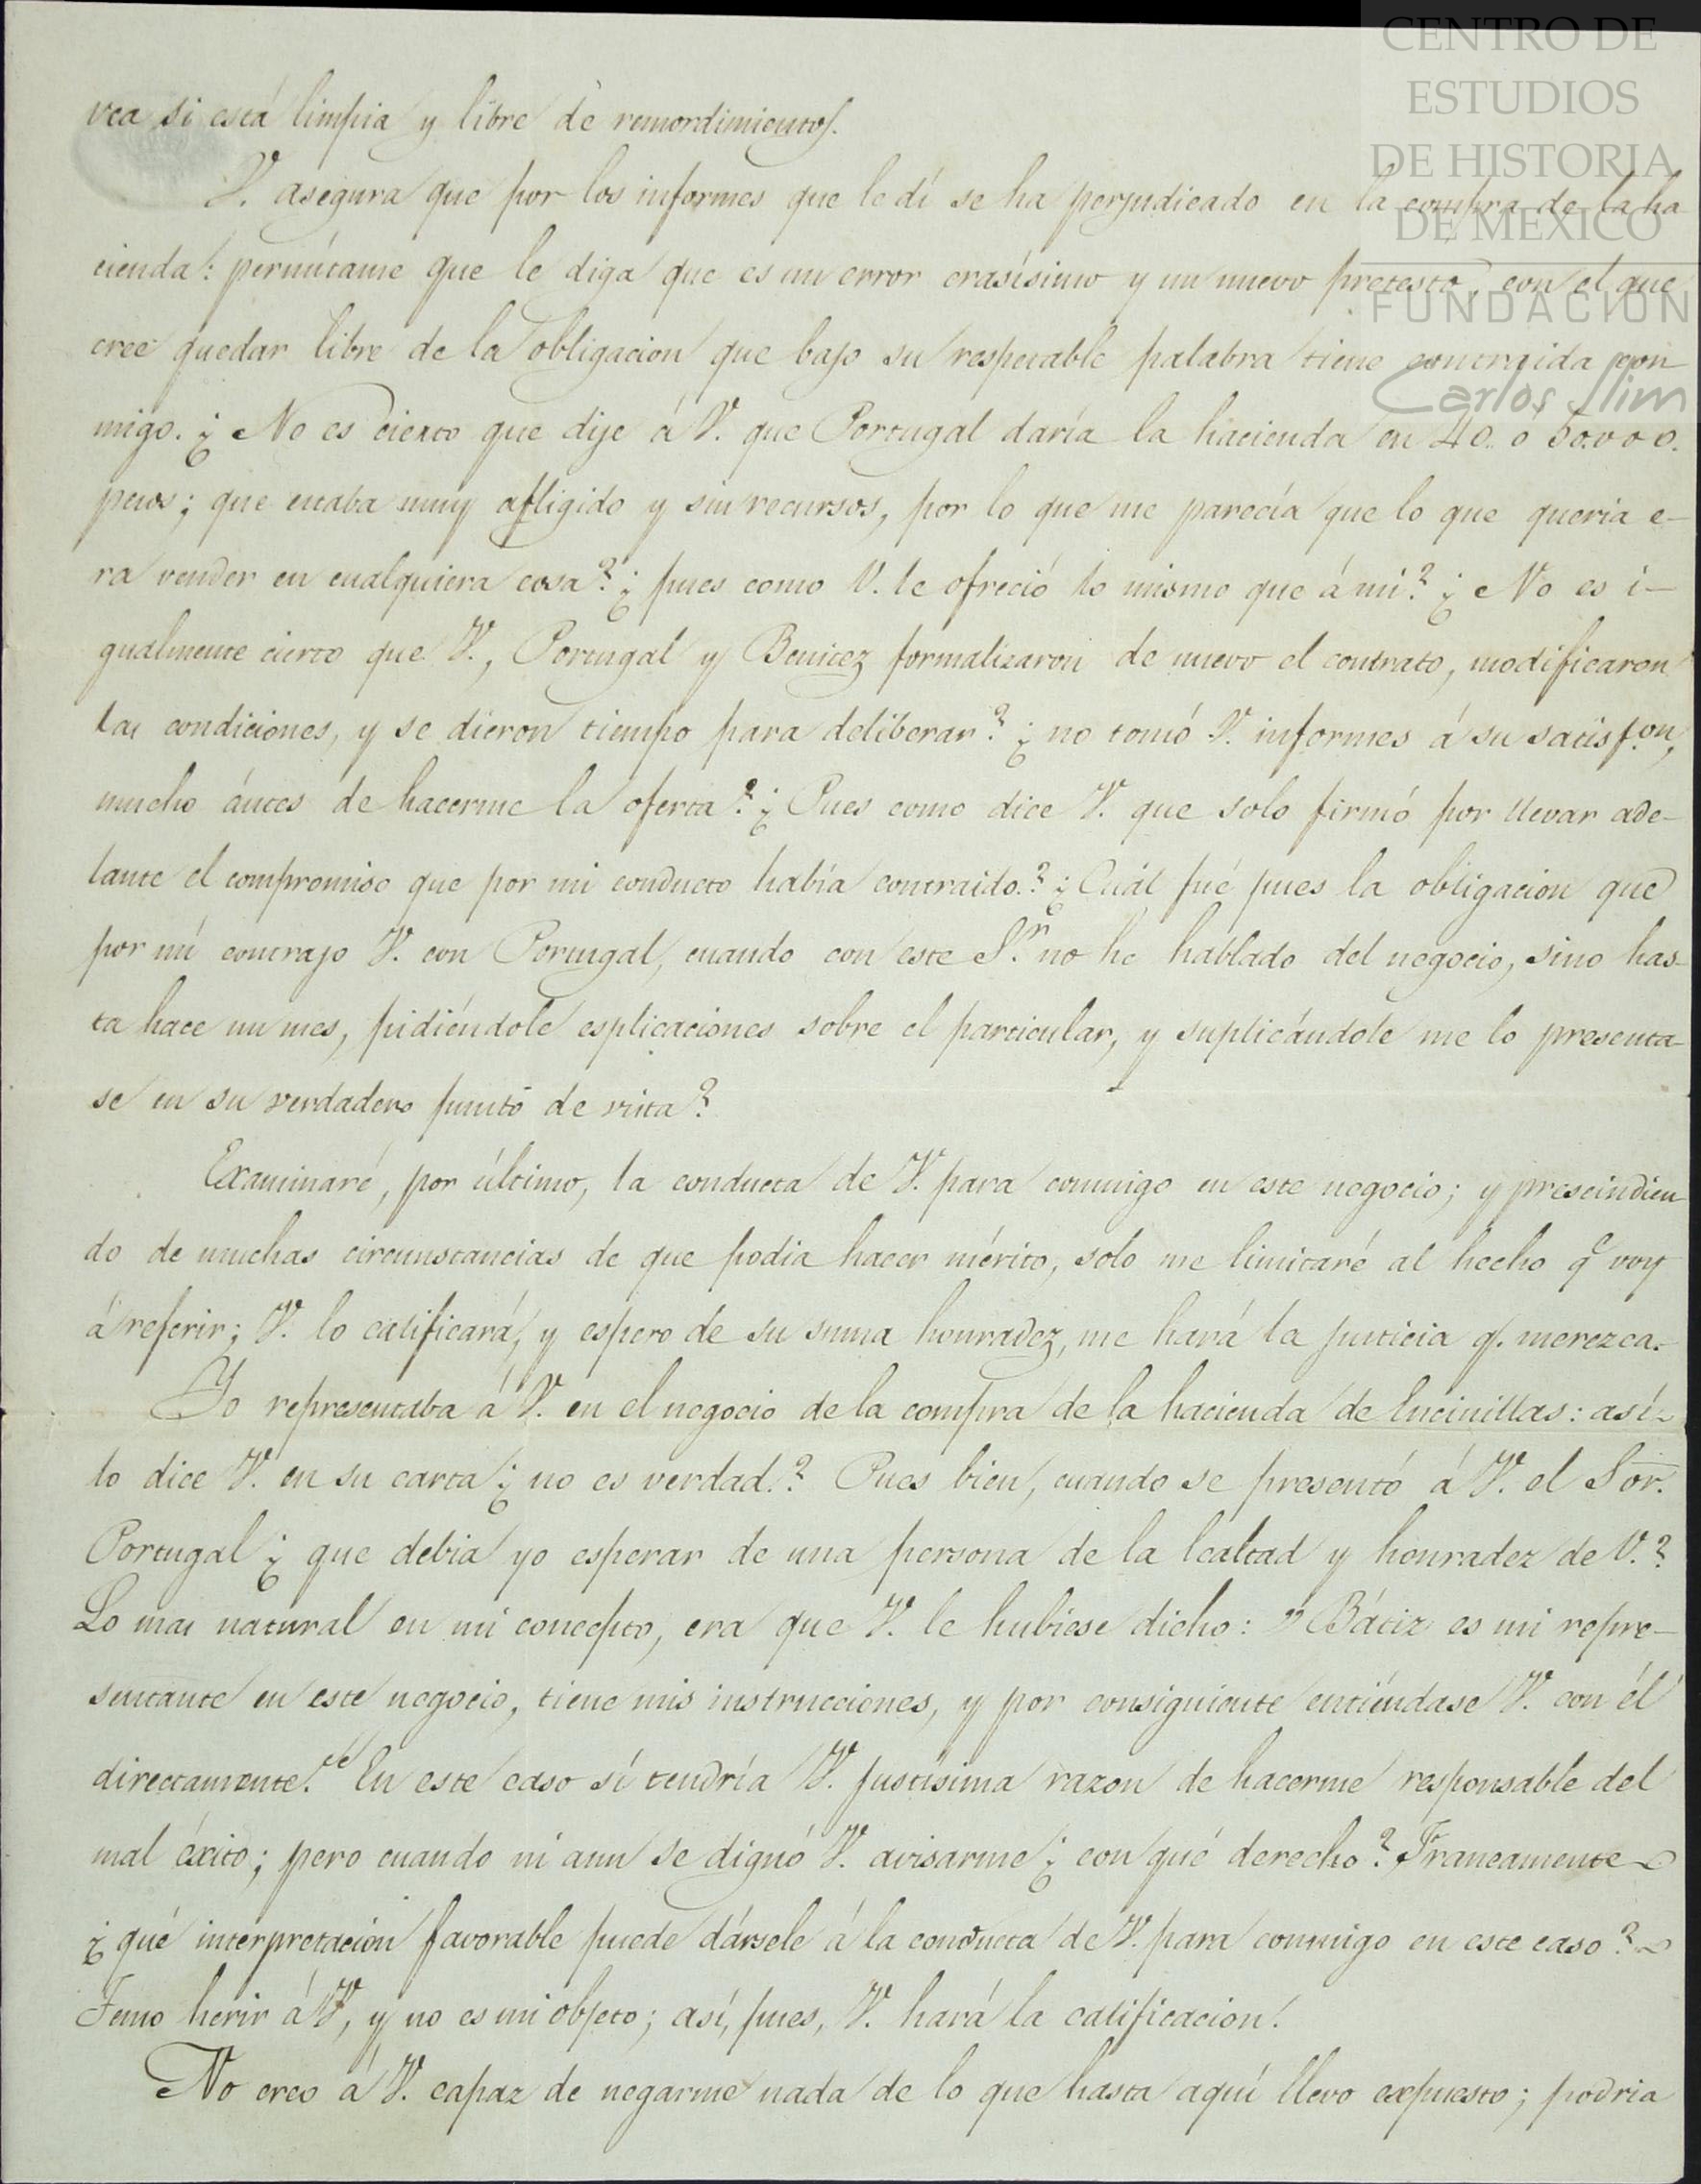 CENTRO DE
ESTUDIOS
DE HISTORIA
DE MEXICO
FUNDACION
Carlos Slim
vea si está limpia y libre de remordimientos.
V. asegura que por los informes que le dí se ha perjudicado en la compra de la ha
cienda: permítame que le diga que es un error crasísimo y un nuevo pretesto, con el que
cree quedar libre de la obligacion que bajo su respetable palabra tiene contraida con
migo. ¿No es cierto que dije á V. que Portugal daría la hacienda en 40 o 50.000.
pesos; que estaba muy afligido y sin recursos, por lo que me parecía que lo que queria e-
ra vender en cualquiera cosa? ¿pues como V. le ofreció lo mismo que á mí? ¿No es i-
gualmente cierto que V., Portugal y Benitez formalizaron de nuevo el contrato, modificaron
las condiciones, y se dieron tiempo para deliberar? ¿no tomó V. informes á su satisf.on,
mucho ántes de hacerme la oferta? ¿Pues como dice V. que solo firmó por llevar ade-
lante el compromiso que por mi conducto había contraido? ¿Cuál fué pues la obligacion que
por mí contrajo V. con Portugal, cuando con este S.r no he hablado del negocio, sino has-
ta hace un mes, pidiéndole esplicaciones sobre el particular, y suplicándole me lo presenta-
se en su verdadero punto de vista?
Examinaré, por último, la conducta de V. para conmigo en este negocio; y prescindien
do de muchas circunstancias de que podia hacer mérito, solo me limitaré al hecho qe voy
á referir; V. lo calificará, y espero de su suma honradez, me hará la justicia q. merezca.
Yo representaba á V. en el negocio de la compra de la hacienda de Encinillas: así
lo dice V. en su carta ¿no es verdad? Pues bien, cuando se presentó á V. el Sor.
Portugal ¿que debia yo esperar de una persona de la lealtad y honradez de V.?
Lo mas natural en mi concepto, era que V. le hubiese dicho: "Bátiz es mi repre-
sentante en este negocio, tiene mis instrucciones, y por consiguiente entiéndase V. con él
directamente." En este caso sí tendría V. justísima razon de hacerme responsable del
mal éxito; pero cuando ni aun se dignó V. avisarme ¿con qué derecho? Francamente
¿qué interpretacion favorable puede dársele á la conducta de V. para conmigo en este caso?
Temo herir á V., y no es mi objeto; así, pues, V. hará la calificacion.
No creo á V. capaz de negarme nada de lo que hasta aquí llevo expuesto; podria